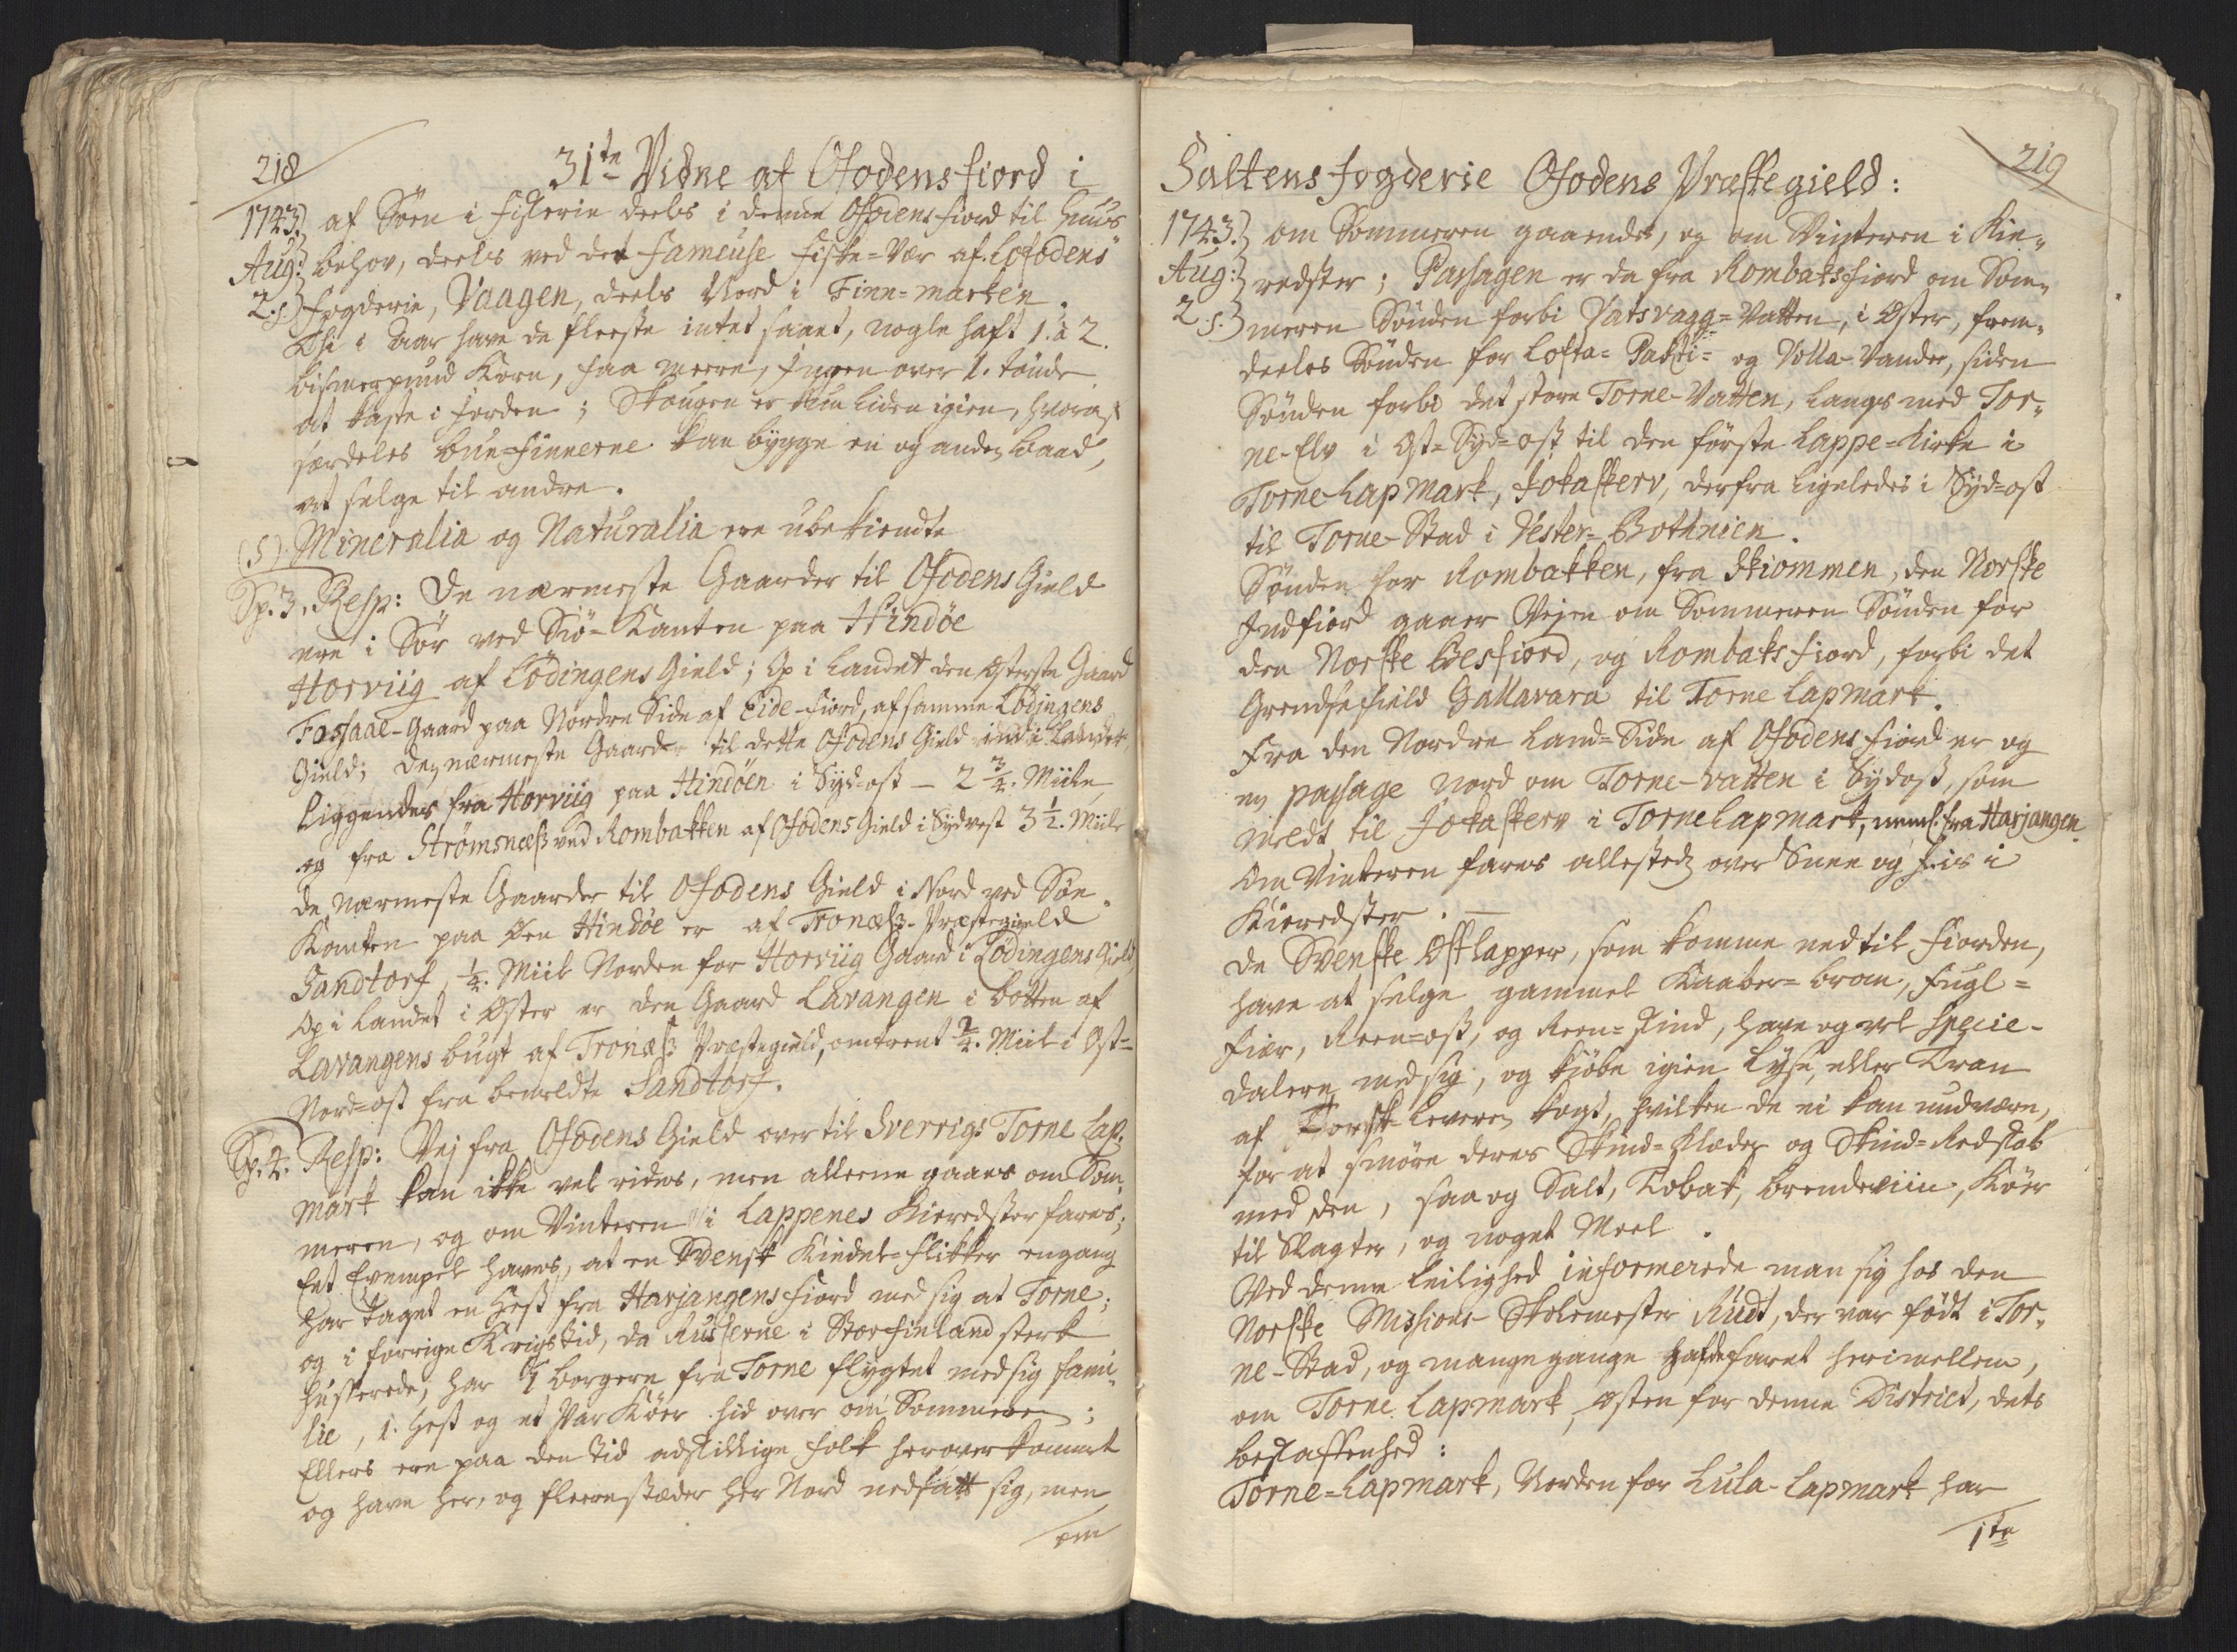 218
31te Vidne af Ofodens fiord i
1743. af Söen i fiskerie deels i denne Ofodens fiord til Huus
Aug: behov, deels ved det fameuse fiske=Vær af Lofodens
2. s. fogderie, Vaagen, deels Nord i Finn=marken.
Thi i aar have de fleeste intet saaet, nogle haft 1. à 2.
bismerpund Korn, faa meere, Ingen over 1. tönde
at kaste i Jorden; Skougen er kun liden igien, hvoraf
særdeles bue=finnerne kan bygge en og anden baad,
at selge til andre.
(5). Mineralia og Naturalia ere ubekiendte
Sp. 3. Resp: De nærmeste Gaarder til Ofodens Gield
ere i Sör ved Siö=Kanten paa Hindöe
Horviig af Lödingens Gield; Op i Landet den Österste Gaard
Fossaae-Gaard paa Nordre Side af Eide-fiord, af samme Lödingens
Gield; de nærmeste Gaarder til dette Ofodens Gield ind i Landet,
liggendes fra Horviig paa Hindöen i Syd=ost - 2 3/4. Miile
og fra Strömsnæss ved Rombakken af Ofodens Gield i Sydvest 3 1/2. Miile
De nærmeste Gaarder til Ofodens Gield i Nord ved Söe
Kanten paa Öen Hindöe er af Tronæss-Præstegield
Sandtorf, 1/4. Miil Norden for Horviig Gaard i Lödingens Gield,
Op i Landet i Öster er den Gaard Lavangen i botten af
Lavangens bugt af Tronæss Præstegield, omtrent 3/4. Miil i Ost=
Nord=ost fra bemeldte Sandtorf.
Sp. 4. Resp: Vej fra Ofodens Gield over til Sverrigs Torne Lap,,
mark kan ikke vel rides, men alleene gaaes om Som,,
meren, og om Vinteren i Lappenes Kieredster fares;
Eet Exempel haves, at en Svensk Kiedel=flikker engang
har taget en Hest fra Harjangens fiord med sig at Torne;
og i forrige Krigs Tid, da Russerne i Storfinland sterk
husserede, har 1 borgere fra Torne flygtet med sig fami,,
lie, 1. Hest og et Par Köer hid over om Sommeren;
Ellers ere paa den Tid adskillige folk herover kommet
og have her, og fleere stæder her Nord nedsatt sig, men
om
219
Saltens fogderie Ofodens Præstegield:
1743. om Sommeren gaaendes, og om Vinteren i Kie,,
Aug: redster; Passagen er da fra Rombaks fiord om Som,,
2. s. meren Sönden forbi Vatsvagg=Vatten, i Öster, frem,,
deeles Sönden for Lofta= Padsi= og Volla-Vander, siden
Sönden forbi det store Torne-Vatten, langs med Tor,,
ne-Elv i Ost=Syd=ost til den förste Lappe=Kirke i
Torne Lapmark, Jokaskerv, derfra ligeledes i Syd=ost
til Torne-Stad i Vester=Bothnien.
Sönden for Rombakken, fra Skiommen, den Norske
Indfiord gaaer Vejen om Sommeren Sönden for
den Norske Besfiord, og Rombaks fiord, forbi det
Grendsefield Gallavara til Torne Lapmark.
Fra den Nordre Land=Side af Ofodens fiord er og
en passage Nord om Torne-Vatten i Sydost, som
meldt, til Jokaskerv i Torne Lapmark, neml. fra Harjangen.
Om Vinteren fares allestedz over Snee og Iis i
Kieredster. —
De Svenske Ostlapper, som komme ned til fiorden,
have at selge gammel Kaaber=bram, fugl=
fiær, Reen=ost, og Reen=skind, have og vel Specie-
dalere med sig, og kiöbe igien Lyse, eller Tran
af Torsk=leveren kogt, hvilken de ei kan undvære,
for at smöre deres Skind=Klæder og Skind=Redskab
med den, saa og Salt, Tobak, brendeviin, Köer
til Slagter, og noget Meel.
Ved denne leilighed informerede man sig hos den
Norske Missions Skolemester Rüdt, der var födt i Tor,,
ne-Stad, og mange gange hafde faret herimellem,
om Torne Lapmark, Östen for denne District, dets
beskaffenhed:
Torne=Lapmark, Norden for Lula-Lapmark har
1te